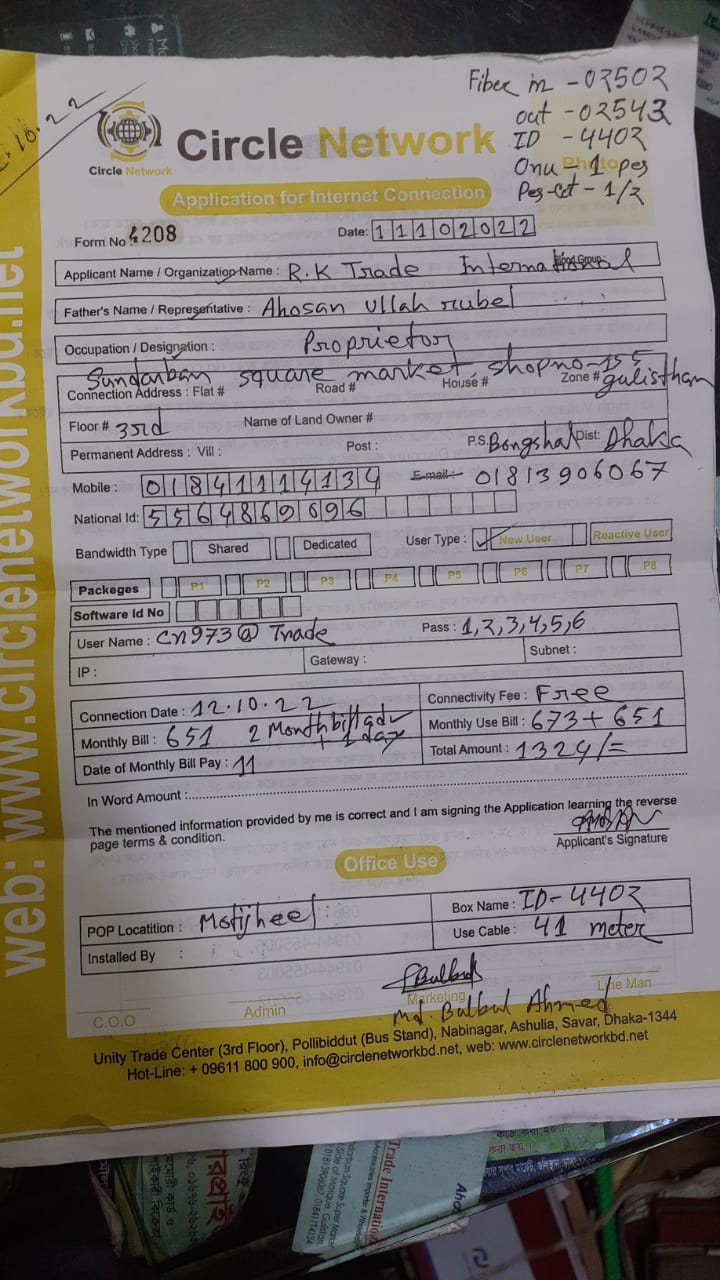 Fiber in - 02502
out - 02543
ID - 4402
Onu - 1 pes
Photo
Pes-Cat - 1/2
2.10.22
Circle Network
Circle Network
Application for Internet Connection
Form No 4208
Date: 11102022
Applicant Name / Organization Name : R.K Trade International
Blood Group:
Father's Name / Representative : Ahosan Ullah rubel
Occupation / Designation : Proprietor
Sundarban square market, shop no-155 gulisthan
Connection Address : Flat # Road # House # Zone #
Floor # 3rd Name of Land Owner #
Permanent Address : Vill : Post : P.S. Bongshal Dist: Dhaka
Mobile : 01841114134 E-mail : 01813906067
National Id: 5564869696
Bandwidth Type Shared Dedicated User Type : New User Reactive User
Packeges P1 P2 P3 P4 P5 P6 P7 P8
Software Id No
User Name : Cn973@Trade Pass : 1,2,3,4,5,6
IP : Gateway : Subnet :
Connection Date : 12.10.22 Connectivity Fee : Free
Monthly Bill : 651 2 Month bill adv + 1 day Monthly Use Bill : 673 + 651
Date of Monthly Bill Pay : 11 Total Amount : 1324/=
In Word Amount :
The mentioned information provided by me is correct and I am signing the Application learning the reverse
page terms & condition.
Applicant's Signature
Office Use
POP Locatition : Motijheel Box Name : ID-4402
Installed By : Use Cable : 41 meter
C.O,O Admin Marketing Line Man
Md. Bulbul Ahmed
Unity Trade Center (3rd Floor), Pollibiddut (Bus Stand), Nabinagar, Ashulia, Savar, Dhaka-1344
Hot-Line: + 09611 800 900, info@circlenetworkbd.net, web: www.circlenetworkbd.net
web: www.circlenetworkbd.net
Trade International